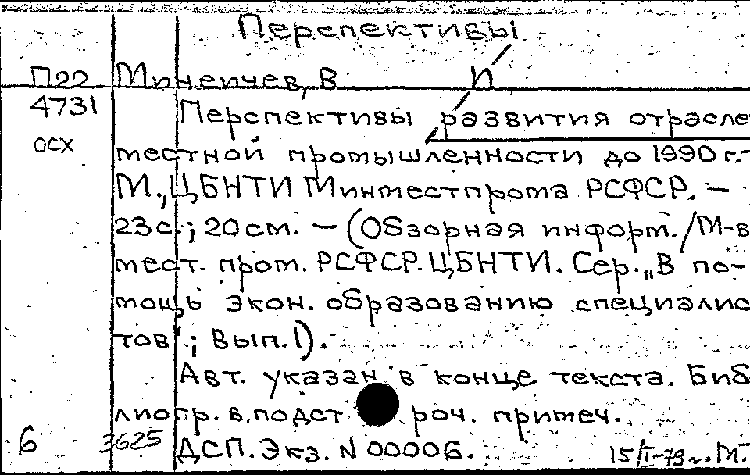 Перспективы
П22 Минеичев, В И
4731 Перспективы развития отрасле
осх местной промышленности до 1990 г.-
М., ЦБНТИ Минместпрома РСФСР. –
23с.; 20см. – (Обзорная информ./М-в
мест. пром. РСФСР. ЦБНТИ. Сер. „В по-
мощь экон. образованию специалис
тов"; Вып.1).
Авт. указан в конце текста. Биб
лиогр. в подст роч. примеч.
6 3625 ДСП. Экз. N 00006. 15/I-79г. М-